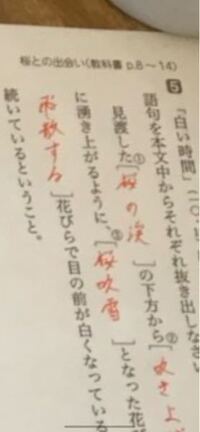 桜との出会い〈教科書 p.8〜14〉
5 「白い時間」
語句を本文中からそれぞれ抜き出しなさい
見渡した①[桜の渓]の下方から②[吹き上
に湧き上がるように、③[桜吹雪]となった花び
[散する]花びらで目の前が白くなっている
続いているということ。